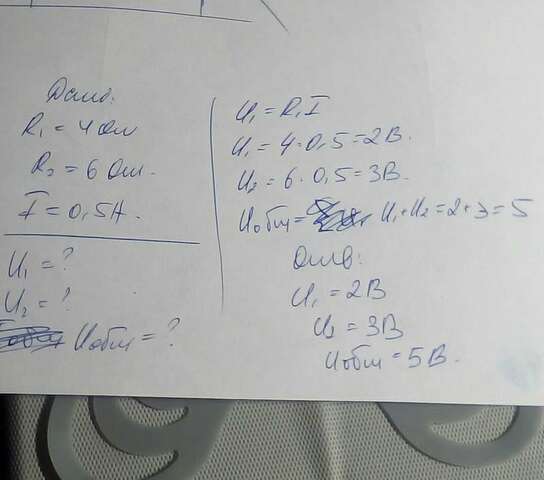 Дано:
R₁ = 4 Ом
R₂ = 6 Ом.
I = 0,5А.
U₁ = ?
U₂ = ?
Uобщ = ?
U₁ = R₁I
U₁ = 4·0,5=2В.
U₂ = 6·0,5=3В.
Uобщ = U₁+U₂=2+3=5
Отв:
U₁ = 2В
U₂ = 3В
Uобщ = 5В.